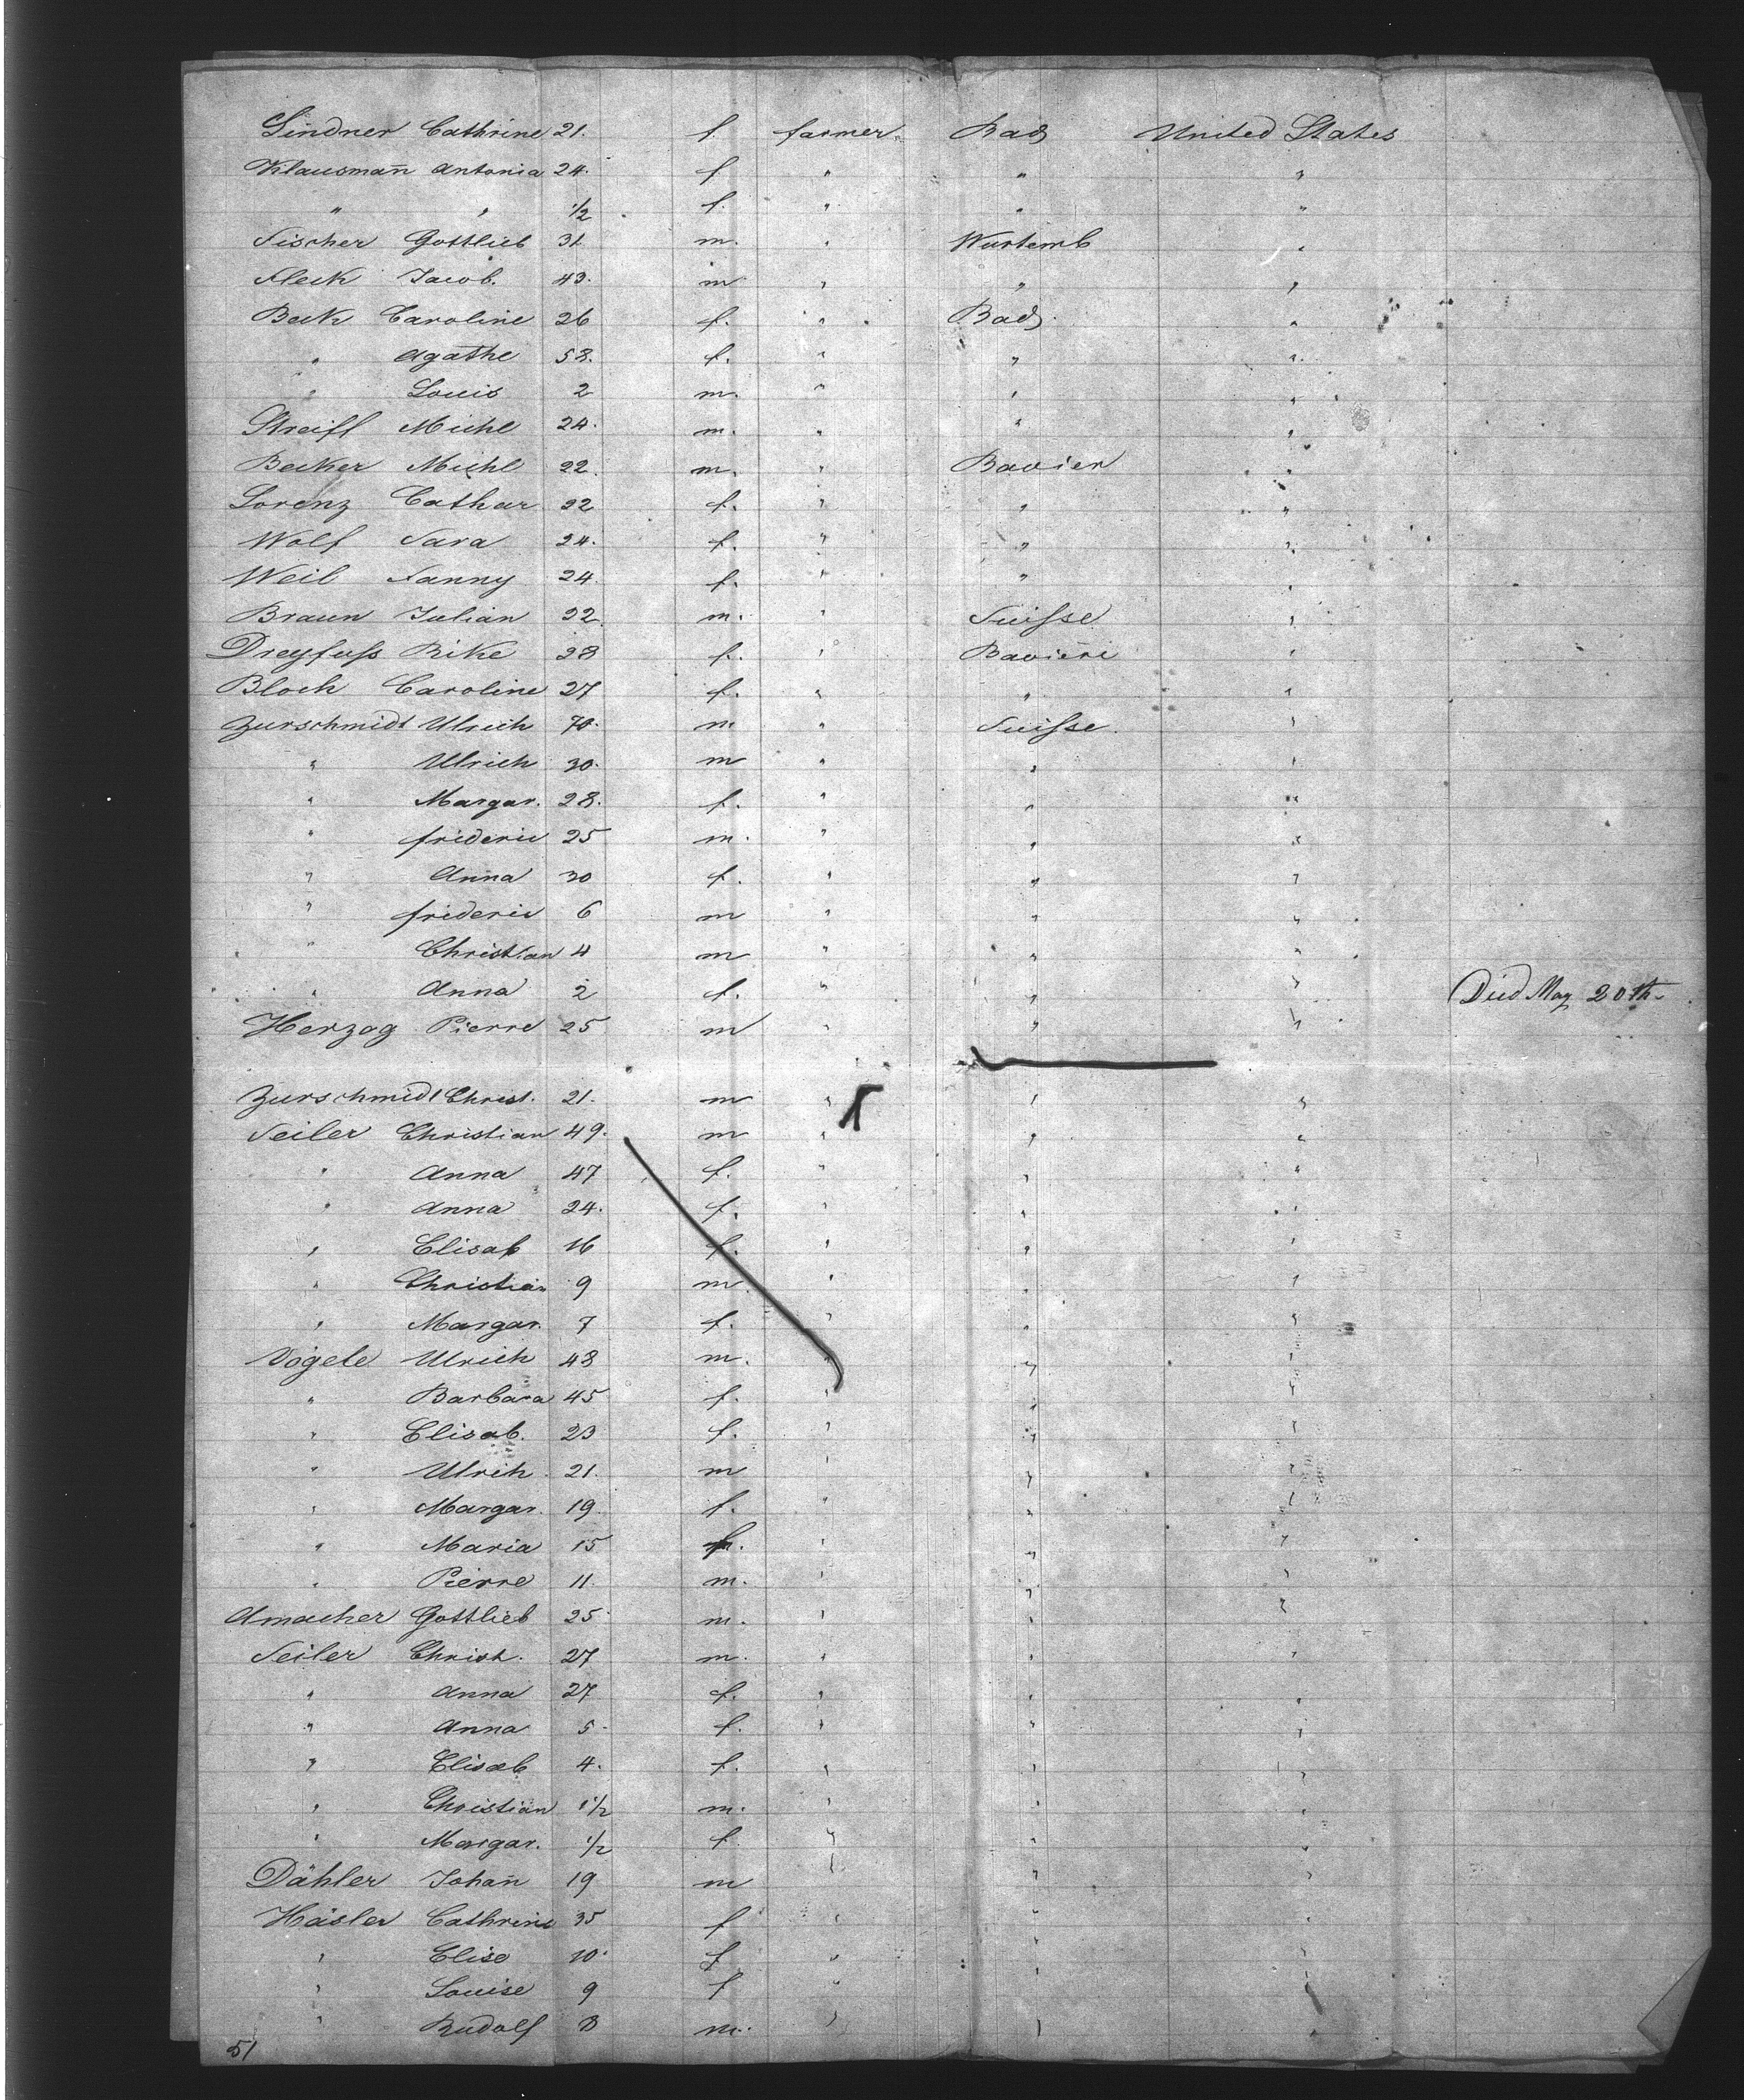 Lindner Cathrine 21. f farmer Bad United States
Klausmañ Antonia 24. f " " "
" " 1/2 f. " " "
Fischer Gottlieb 31 m. " Wurtemb "
Fleck Jacob. 43. m " " "
Beck Caroline 26 f. " Bad. "
" Agathe 58. f. " " "
" Louis 2 m. " " "
Streiff Michl 24. m. " " "
Becker Michl 22. m. " Bavier "
Lorenz Cathar 22 f. " " "
Wolf Sara 24. f. " " "
Weil Fanny 24. f. " " "
Braun Julian 22. m. " Suisse "
Dreyfuss Rike 28 f. " Bavière "
Bloch Caroline 27 f. " " "
Zurschmidt Ulrich 70. m " Suisse. "
" Ulrich 30. m " " "
" Margar. 28. f. " " "
" frideric 25 m. " " "
" Anna 30 f. " " "
" frideric 6 m " " "
" Christian 4 m " " "
" Anna 2 f. " " " Died May 20th.
Herzog Pierre 25 m " " "
Zurschmidt Christ. 21. m " " "
Seiler Christian 49. m " " "
" Anna 47 f. " " "
" Anna 24. f. " " "
" Elisab 16 f. " " "
" Christian 9 m. " " "
" Margar. 7 f. " " "
Vögele Ulrich 48 m. " " "
" Barbara 45 f. " " "
" Elisab. 23 f. " " "
" Ulrich 21. m " " "
" Margar. 19. f. " " "
" Maria 15 f. " " "
" Pierre 11. m. " " "
Amacher Gottlieb 25 m. " " "
Seiler Christ. 27 m. " " "
" Anna 27 f. " " "
" Anna 5 f. " " "
" Elisab 4. f. " " "
" Christian 1 1/2 m. " " "
" Margar. 1/2 f " " "
Dähler Johañ 19 m " " "
Häsler Cathrine 35 f " " "
" Elise 10. f " " "
" Louise 9 f " " "
" Rudolf 8 m. " " "
51